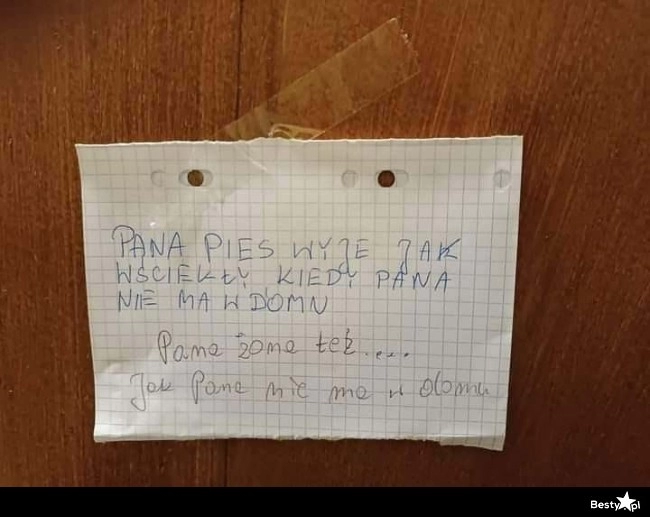 PANA PIES WYJE JAK
WŚCIEKŁY, KIEDY PANA
NIE MA W DOMU
Pana żona też....
Jak Pana nie ma w domu
Besty.pl